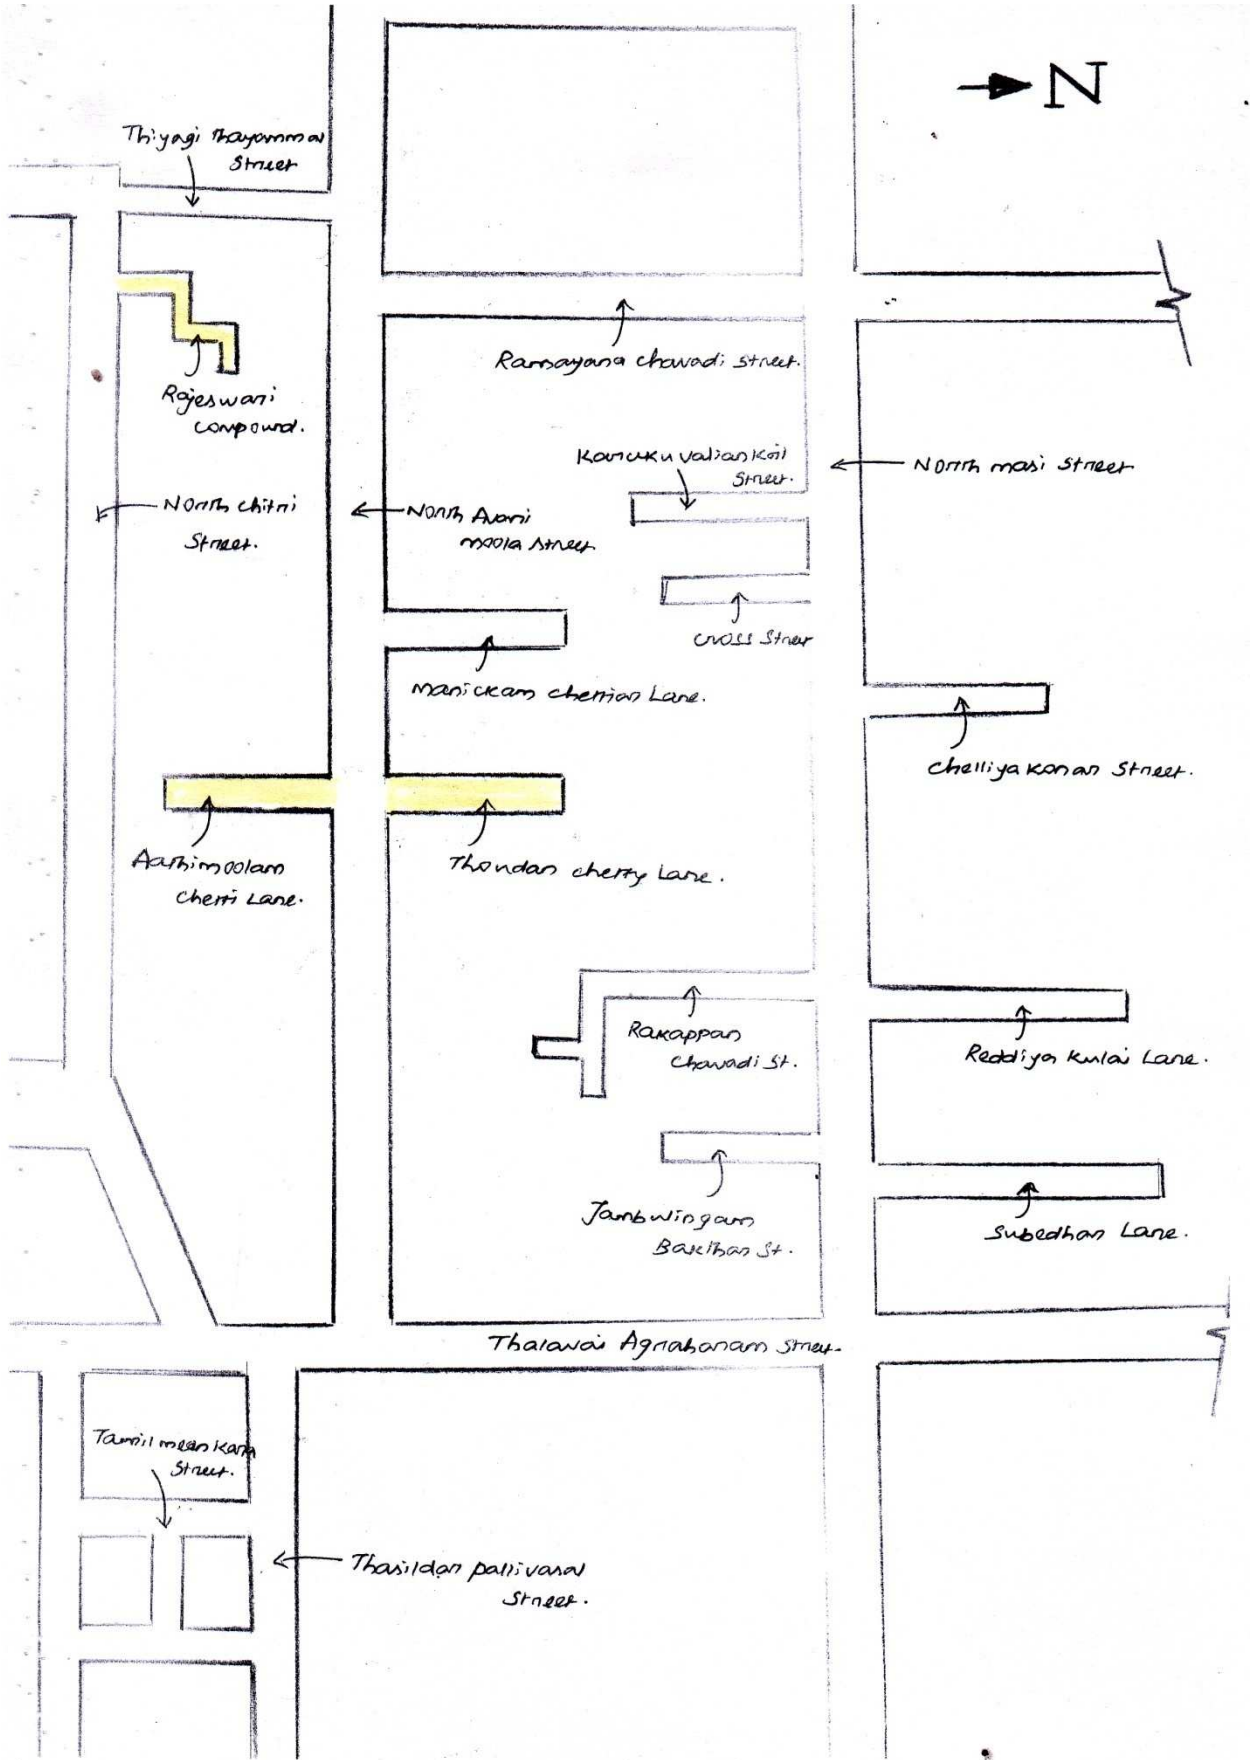 N
Thiyagi Thayammal
Street
Ramayana chavadi Street.
Rajeswari
compound.
Karukuvalian Koil
Street.
North masi Street
North chitri
Street.
North Avani
moola Street
cross Street
Manickam chettiar Lane.
chelliya konar Street.
Aathimoolam
chetti Lane.
Thoudan chetty Lane.
Rakappan
Chavadi St.
Reddiya kulai Lane.
Jambulingam
St.
Subedhar Lane.
Thalavai Agraharam Street.
Tamil
Street.
Thasildar pallivasal
Street.